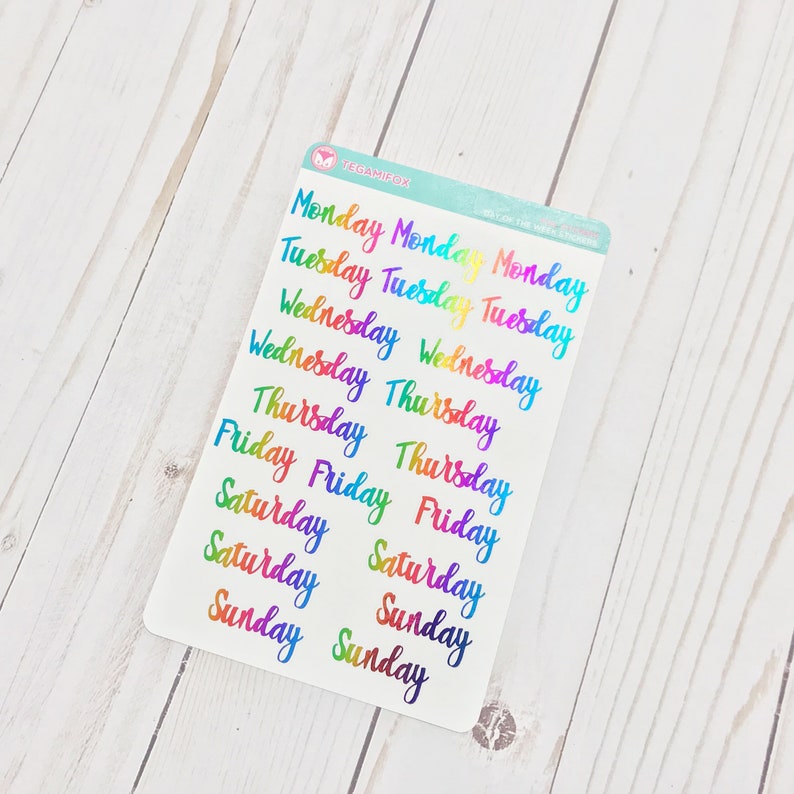 TEGAMIFOX
DAY OF THE WEEK STICKERS
Monday Monday Monday
Tuesday Tuesday Tuesday
Wednesday Wednesday
Wednesday Thursday
Thursday Thursday
Friday Friday Friday
Saturday
Saturday Saturday
Sunday Sunday
Sunday